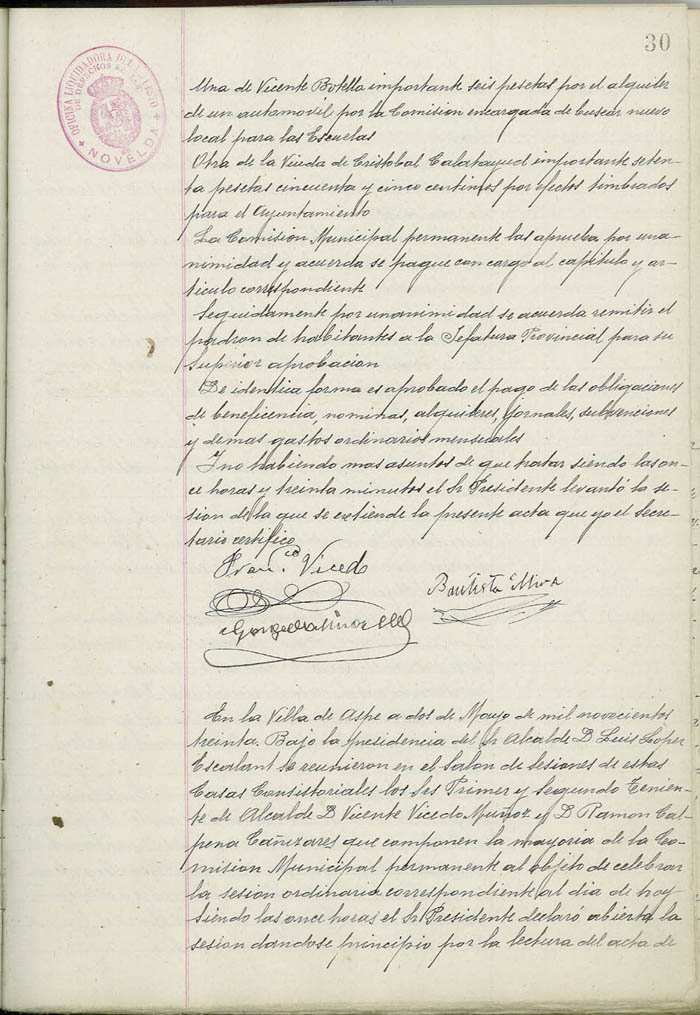 30
OFICINA LIQUIDADORA DEL
DE DERECHOS REALES
NOVELDA
Una de Vicente Botella importante seis pesetas por el alquiler
de un automovil por la Comision encargada de buscar nuevo
local para las Escuelas
Otra de la Viuda de Cristobal Calatayud importante seten-
ta pesetas cincuenta y cinco centimos por efectos timbrados
para el Ayuntamiento
La Comision Municipal permanente las aprueba por una-
nimidad y acuerda se paque con cargo al capitulo y ar-
ticulo correspondiente
Seguidamente por unanimidad se acuerda remitir el
padron de habitantes a la Jefatura Provincial para su
Superior aprobacion
De identica forma es aprobado el pago de las obligaciones
de beneficencia, nominas, alquileres, jornales, subvenciones
y demas gastos ordinarios mensuales
I no habiendo mas asuntos de que tratar siendo las on-
ce horas y treinta minutos el Sr Presidente levantó la se-
sion de la que se extiende la presente acta que yo el Secre-
tario certifico
Fran.co Vicedo
Bautista Mira
En la Villa de Aspe a dos de Mayo de mil novecientos
treinta. Bajo la presidencia del Sr Alcalde D Luis Lopez
Escalant se reunieron en el Salon de Sesiones de estas
Casas Consistoriales los Srs Primer y Segundo Tenien-
te de Alcalde D Vicente Vicedo Muñoz y D Ramon Cal-
pena Cañizares que componen la mayoria de la Co-
mision Municipal permanente al objeto de celebrar
la sesion ordinaria correspondiente al dia de hoy
Siendo las once horas el Sr Presidente declaró abierta la
sesion dandose principio por la lectura del acta de